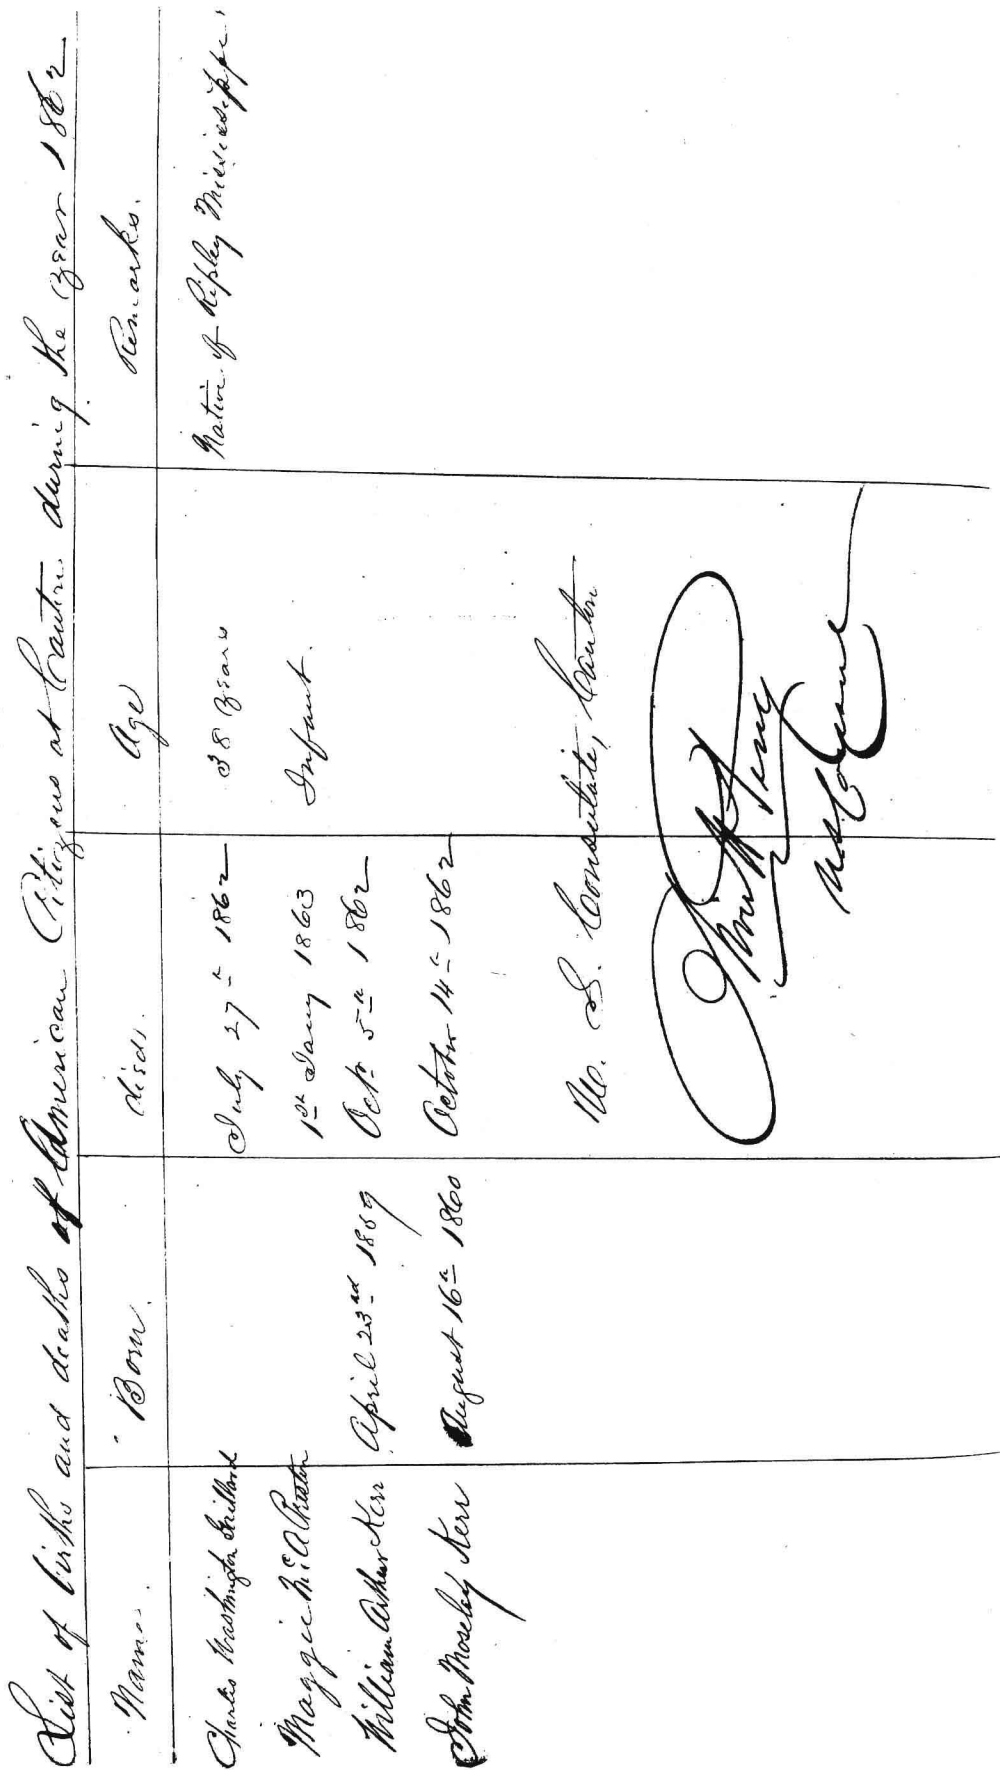 List of births and deaths of American Citizens at Canton during the year 1862
Name. Born. died. Age Remarks.
Charles Washington Gaillard July 27th 1862 38 years Native of Ripley Mississippi
Maggie McA Preston 1st Jany 1863 Infant.
William Arthur Kerr April 23rd 1859 Octr 5th 1862
John Moseley Kerr August 16th 1860 October 14th 1862
U. S. Consulate, Canton
Perry